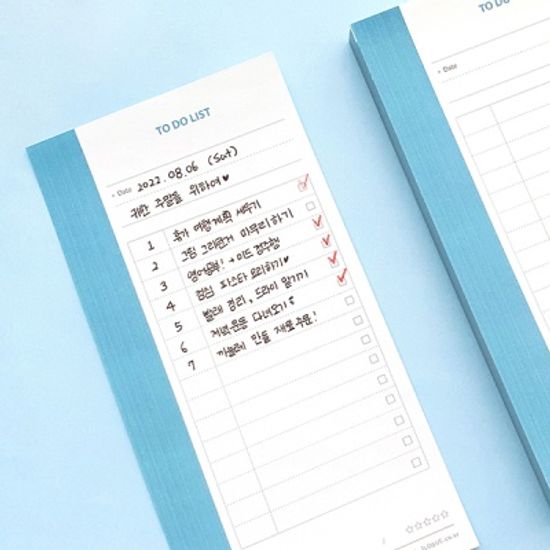 TO DO LIST
• Date 2022.08.06 (Sat)
귀한 주말을 위하여♥
1 휴가 여행계획 세우기
2 그림 그리던거 마무리하기
3 영어공부! → 미드 정주행
4 점심 파스타 요리하기♥
5 빨래 정리, 드라이 맡기기
6 저녁운동 다녀오기
7 까눌레 만들 재료주문!
TO DO
• Date